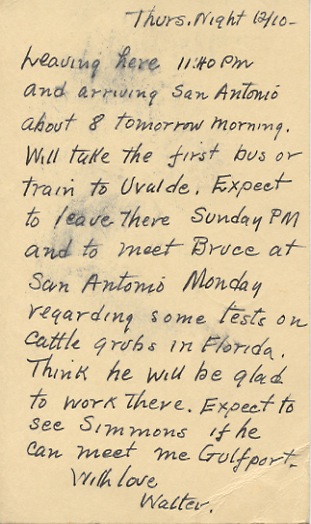 Thurs. Night 12/10-
Leaving here 11:40 PM
and arriving San Antonio
about 8 tomorrow morning.
Will take the first bus or
train to Uvalde. Expect
to leave there Sunday PM
and to meet Bruce at
San Antonio Monday
regarding some tests on
Cattle grubs in Florida.
Think he will be glad
to work there. Expect to
see Simmons if he
can meet me Gulfport-
With love
Walter.